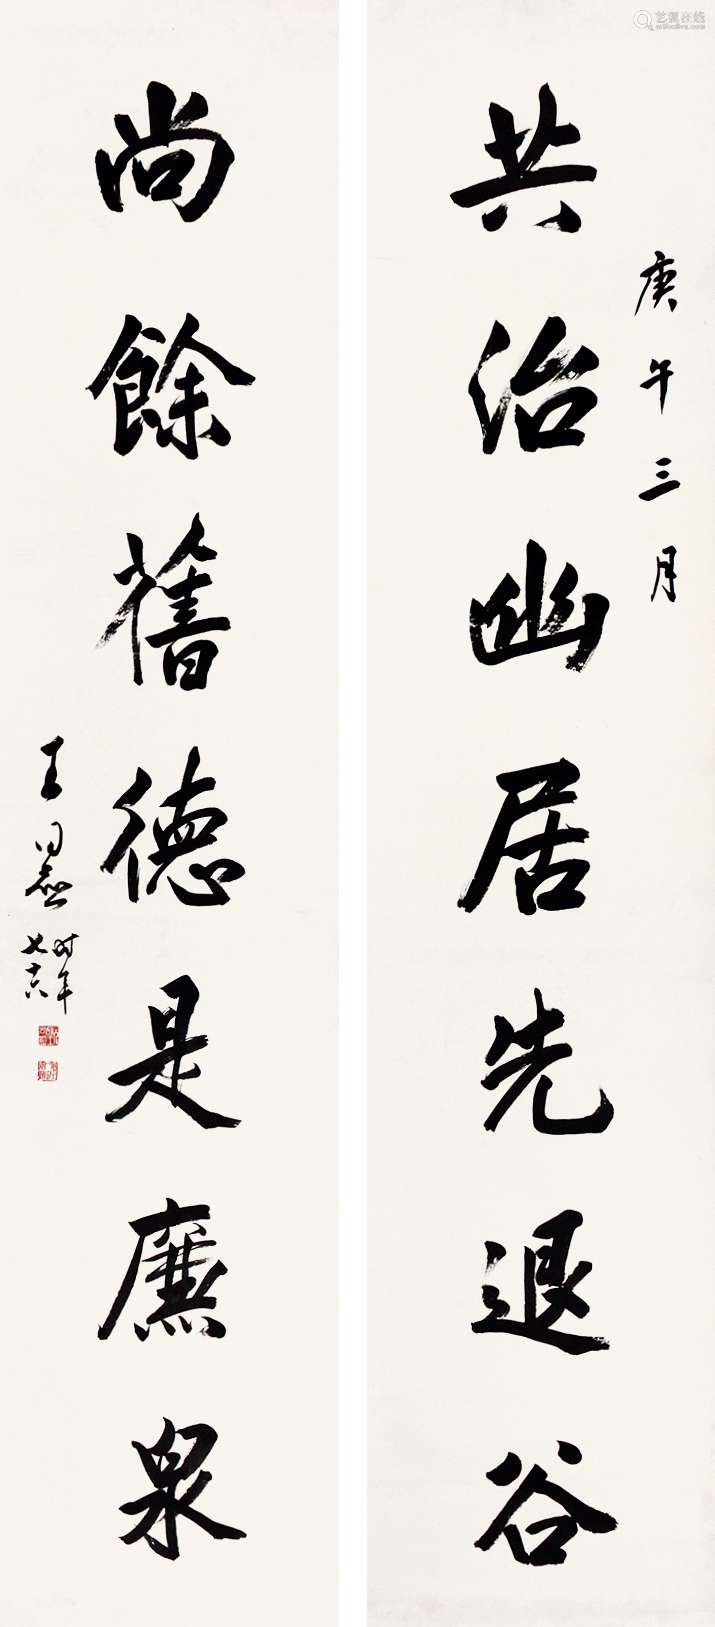 庚午三月
共治幽居先退谷
尚餘舊德是廉泉
王同愈
时年
七十六
艺狐在线